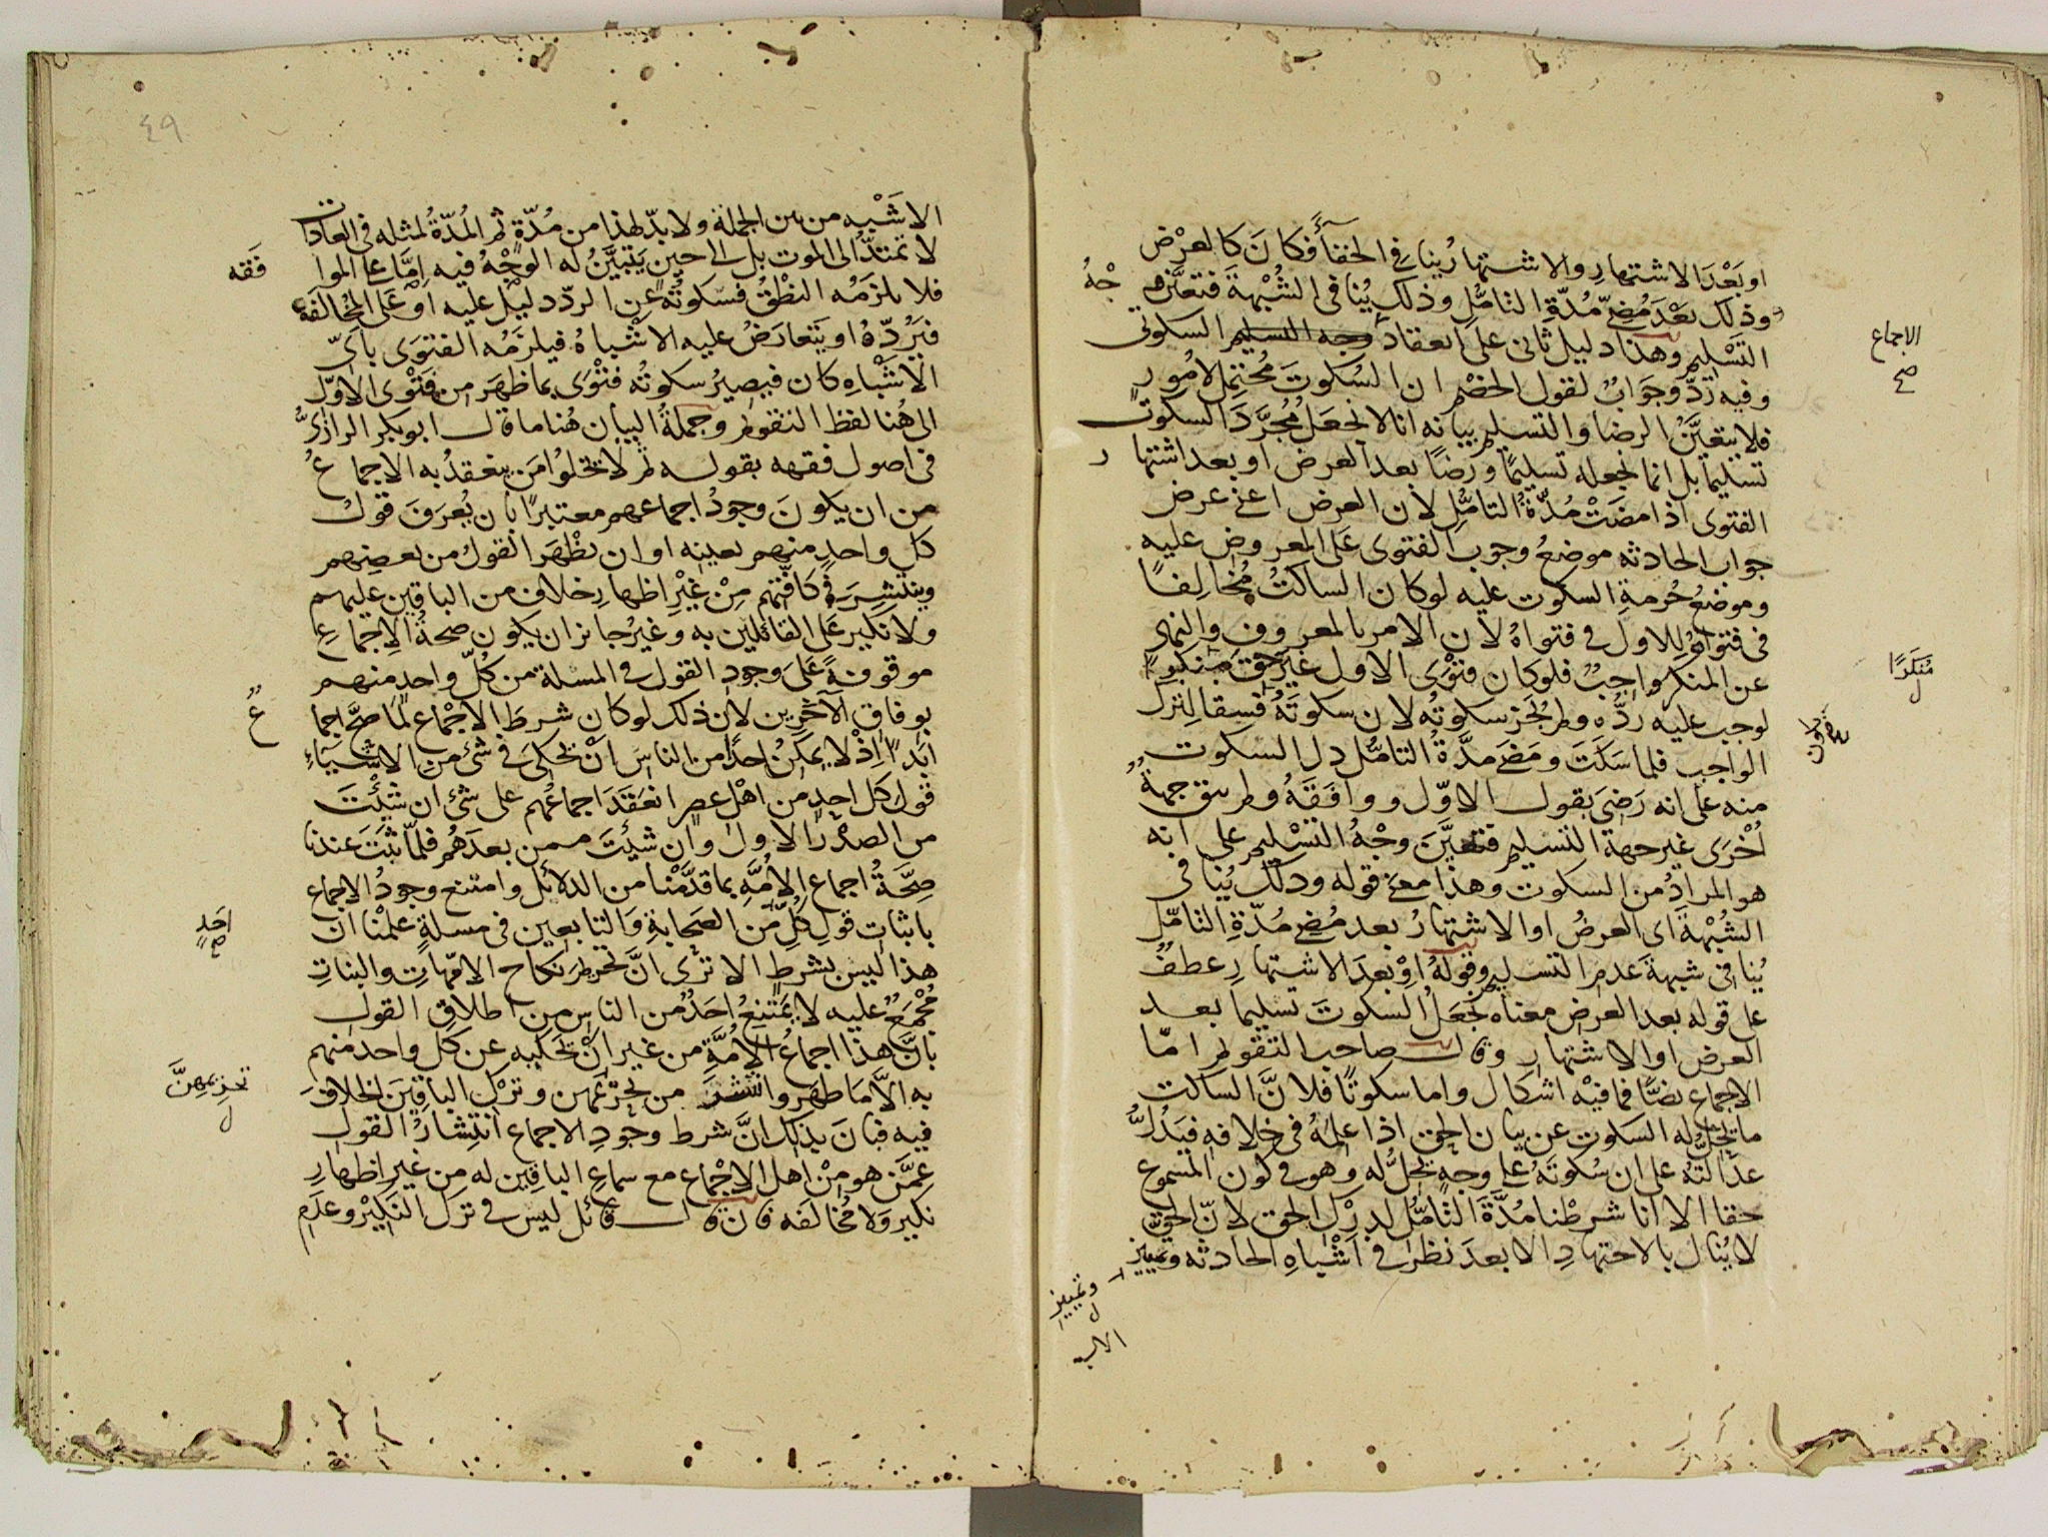 او بَعْدَ الاشتهارِ والاشتهارُ ينافي الخفآءَ فكانَ كالعرْض
وذلك بَعْدَ مُضِيّ مُدّةِ التامُّلِ وذلك يُنافي الشُبْهةَ فتعيَّن وجْهُ
التسْليم وهذا دليل ثانى على انعقاد الاجماع السكوتى
وفيه ردّ وجوابٌ لقول الخصْم ان السُكوتَ مُحتمِل لامُور
فلا يتعيَّنُ الرضا والتسليم بيانه انا لا نجعَلُ مُجرَّدَ السكوت
تسليماً بل انما نجعله تسليمًا ورضًا بعد العرض او بعد اشتهار
الفتوى اذا مضَتْ مُدّةُ التامُّلِ لأن العرض اعنى عرض
جواب الحادثه موضعُ وجوب الفتوى عَلى المعروض عليه
وموضعُ حُرمةِ السكوت عليه لو كان الساكتُ مُخالِفًا
فى فتواهُ للاول فى فتواهُ لأن الامر بالمعروف والنهى
عن المنكر واجبٌ فلو كان فتوَى الاول غيرَ حقّ منكرًا
لوجب عليه ردُّه ولم يجُز سكوتُه لان سكوتَهُ فسقا لترْك
الواجب فلما سكَتَ ومَضَى مدّةُ التامُّل دل السكوت
منه على انه رَضىَ بقول الاوّل ووافَقَهُ ولم يبق جهةٌ
اُخْرَى غير جهة التسليم فتعيَّنَ وجْهُ التسْليم على انه
هو المرادُ من السكوت وهذا معنى قوله وذلك يُنافى
الشُبْهةَ اى العرضُ او الاشتهارُ بعد مُضِى مُدّةِ التامّل
يُنافى شبهةَ عدم التسليم وقولهُ اوْ بعدَ الاشتهارِ عطفٌ
على قوله بعد العرض معناه نجعَلُ السكوتَ تسليما بعد
العرض او الاشتهار وقال صاحب التقويم امّا
الاجماع نصًّا فما فيْه اشكال واما سكوتًا فلانَّ الساكت
ما يَحِلُّ له السكوت عن بيان الحق اذا علمهُ فى خلافِه فيَدُلُّ
عدَالتهُ على ان سُكوتَهُ على وجهٍ يحِلُّ له وهو فى كون المسموع
حقا الا انا شرطْنا مُدّةَ التامُّل لدرْك الحق لانّ الحق
لا يُنال بالاجتهادِ الا بعدَ نظرٍ فى اشْباهِ الحادثه وتمييز
الاجماع
صح
مُنكرًا
ل
وتمييز
ل
٤٩
الاشْبهِ من بين الجملة ولا بدّ لهذا من مُدّةٍ ثم المُدّةُ لمثله فى العادات
لا تمتدُّ الى الموت بل الى حين يتبيَّنُ له الوجْهُ فيه اِمَّا على الموافَقه
فلا يلزمُه النطْقُ فسكوتُه عن الردّ دليل عليه او عَلى المخالفة
فيَرُدّهُ او يتعارَضُ عليه الاشْباهُ فيلزَمُه الفتوى باىّ
الاشْباهِ كان فيصيرُ سكوتُه فتْوَى بما ظهَر من فَتْوى الاوّل
الى هُنا لفظ التقويم وجملةُ البيان هُنا ما قال ابو بكر الرازىُّ
فى اصول فقهه بقوله ثم لا يخلُوا مَن ينعقدُ به الاجماعُ
من ان يكونَ وجودُ اجماعهم معتبرًا بأن يُعرَفَ قولُ
كل واحدٍ منهم بعينِه او ان يظْهَر القولُ من بعضِهم
وينتشِرَ فى كافّتهم مِنْ غيْرِ اظهارِ خلافٍ من الباقين عليهم
ولا نكير على القائلين به وغيرُ جائز ان يكون صحةُ الاجماعِ
موقوفةً عَلى وجودِ القول فى المسلة من كُلّ واحدٍ منهم
بوفاقِ الآخَرِين لانّ ذلك لو كان شرطَ الاجماعِ لمَا صحَّ اجماعٌ
ابدًا اِذْ لا يمكنُ احدًا من الناس انْ يحكىَ فى شىء من الاشياءِ
قول كل احدٍ من اهْل عصرٍ انعَقَدَ اجماعُهم على شىء ان شئْتَ
من الصدْرِ الاول وان شئتَ ممن بعدَهُم فلمّا ثبَتَ عندنا
صِحّةُ اجماع الامّهِ بما قدَّمْنا من الدلائل وامتنع وجودُ الاجماع
باثبات قول كلّ احَدٍ من الصَحابةِ والتابعين فى مسلةٍ علمْنا انّ
هذا ليس بشرطٍ الا ترى انَّ تحريم نكاح الامّهاتِ والبناتِ
مُجْمَعٌ عليه لا يَمتنعُ احَدٌ من الناس من اطلاقِ القول
بانّ هذا اجماعُ الامّةِ من غير انْ يحكيه عن كل واحد منهم
به الاَّ ما ظهَر وانتشَرَ من تحريمهن وترْك الباقينَ الخلافَ
فيه فبانَ بذلك انَّ شرط وجودِ الاجماع انتشارُ القول
عمَّن هو مِنْ اهل الاجماع مع سماع الباقين له من غير اظهارِ
نكير ولا مُخالفه فان قال قائل ليس فى ترك النَكيْر وعدَمِ
احَدٍ
صح
تحريمِهنَّ
ل